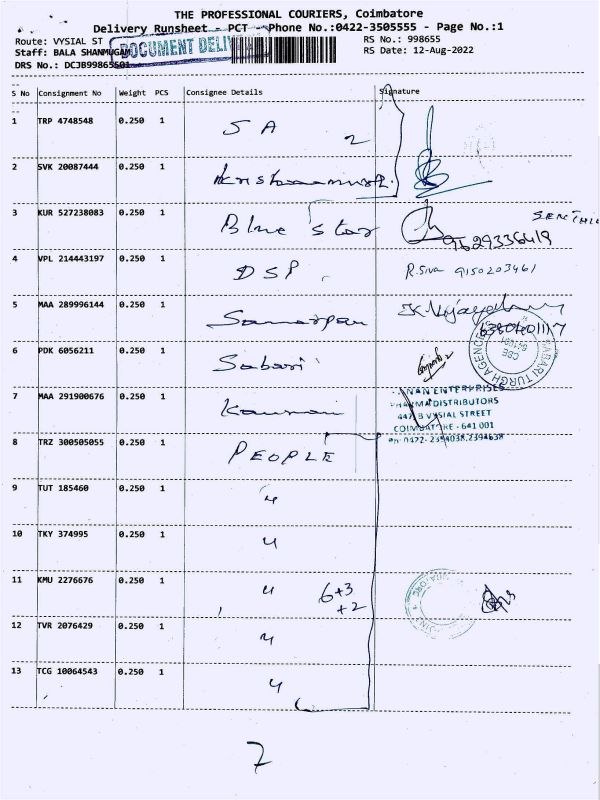 THE PROFESSIONAL COURIERS, Coimbatore
Delivery Runsheet - PCT - Phone No.:0422-3505555 - Page No.:1
Route: VYSIAL ST
RS No.: 998655
Staff: BALA SHANMUGAM
DOCUMENT
RS Date: 12-Aug-2022
DRS No.: DCJB99865501
S No Consignment No Weight PCS Consignee Details Signature
1 TRP 4748548 0.250 1 S A 2
2 SVK 20087444 0.250 1
3 KUR 527238083 0.250 1 Blue star 9629336419
4 VPL 214443197 0.250 1 DSP R.Siva 9150203461
5 MAA 289996144 0.250 1
6 PDK 6056211 0.250 1 Sabari
SABARI TURGH AGENCE
CBE
7 MAA 291900676 0.250 1 Kannan
NAN ENTERPRISES
PHARMA DISTRIBUTORS
447, B VYSIAL STREET
COIMBATORE - 641 001
Ph: 0422- 2394038, 2394638
8 TRZ 300505055 0.250 1 PEOPLE
9 TUT 185460 0.250 1 "
10 TKY 374995 0.250 1 "
11 KMU 2276676 0.250 1 " 6+3
+2
12 TVR 2076429 0.250 1 "
13 TCG 10064543 0.250 1 "
7